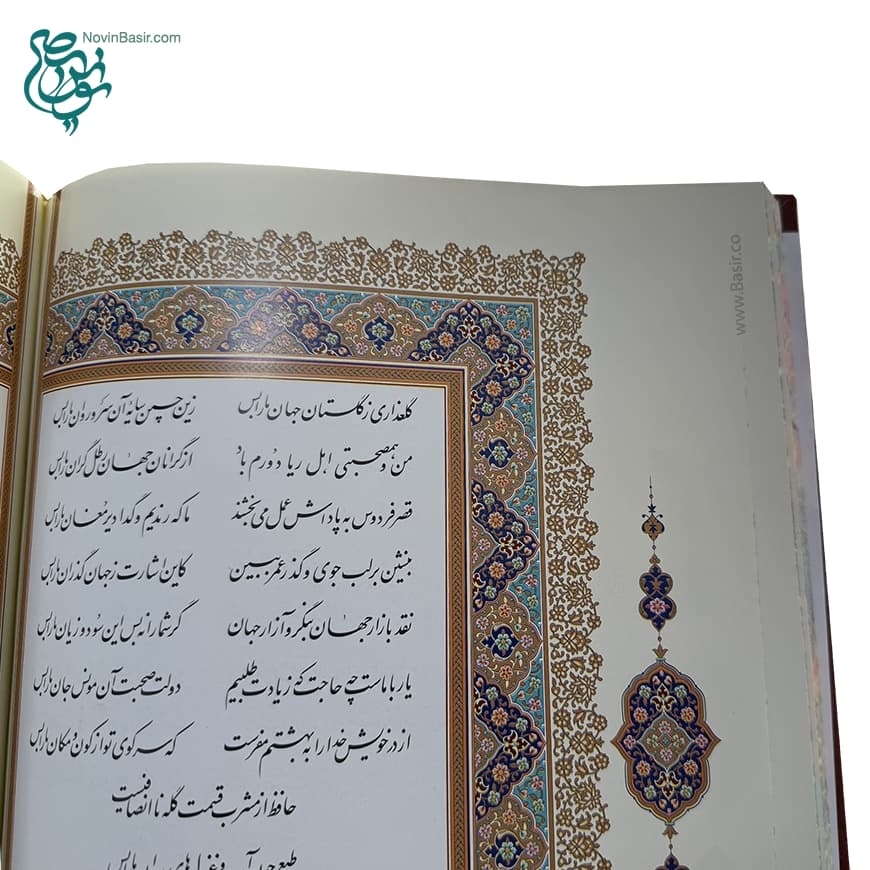 NovinBasir.com
www.Basir.co
گلعذاری ز گلستان جهان ما را بس زین چمن سایهٔ آن سرو روان ما را بس
من و همصحبتی اهل ریا دورم باد از گرانان جهان رطل گران ما را بس
قصر فردوس به پاداش عمل می‌بخشند ما که رندیم و گدا دیر مغان ما را بس
بنشین بر لب جوی و گذر عمر ببین کاین اشارت ز جهان گذران ما را بس
نقد بازار جهان بنگر و آزار جهان گر شما را نه بس این سود و زیان ما را بس
یار با ماست چه حاجت که زیادت طلبیم دولت صحبت آن مونس جان ما را بس
از در خویش خدا را به بهشتم مفرست که سر کوی تو از کون و مکان ما را بس
حافظ از مشرب قسمت گله ناانصافیست
طبع چون آب و غزل‌های روان ما را بس